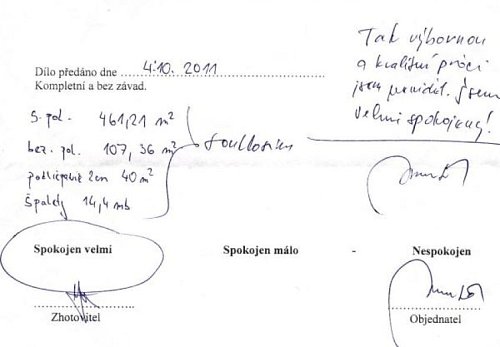 Tak výbornou
a kvalitní práci
jsem neviděl. Jsem
velmi spokojený!
Dílo předáno dne 4.10. 2011
Kompletní a bez závad.
S. pol. 461,21 m²
bez. pol. 107,36 m²
souhlasím
40 m²
Špalety 14,4 mb
Spokojen velmi Spokojen málo - Nespokojen
Zhotovitel Objednatel